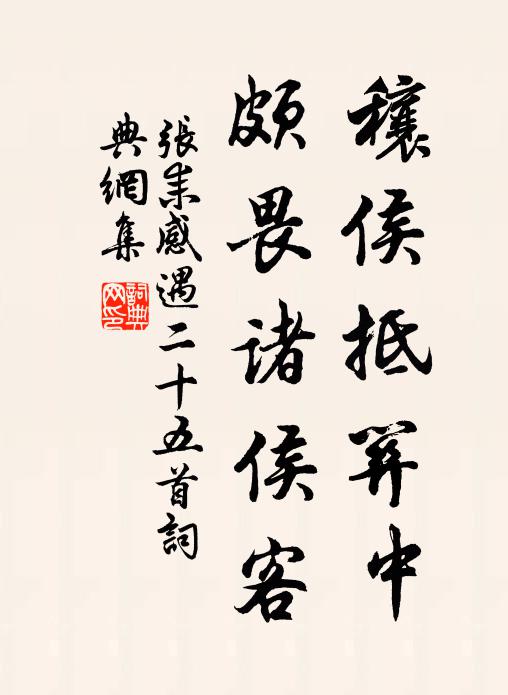 穰侯抵關中
頗畏諸侯客
張耒感遇二十五首詞
典網集
詞典网印